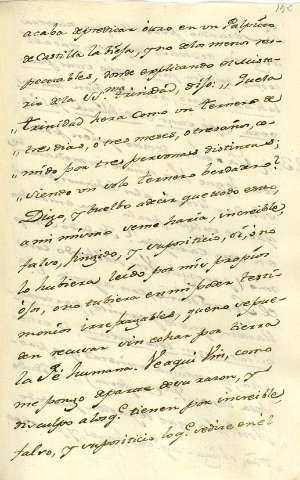 acaba de predicar otro en un Pulpito
de Castilla la Vieja, y no de los menos res-
petables, donde explicando el Miste-
rio de la SS.ma Trinidad, dijo: ,, Que la
,, Trinidad hera como un ternero de
,, tres dias, ò tres meses, o tres años, co-
,, mido por tres personas distintas;
,, siendo un solo ternero verdadero?
Digo, y buelbo a decir que todo esto,
a mi mismo se me haria, increible,
falso, fingido, y supositicio, si, ò no
lo hubiera leido por mis propios
ojos, o no tubiera en mi poder testi-
monios irrefragables, que no se pue-
den recusar sin echar por tierra
la Fé humana. Veaqui Vm, como
me pongo de parte de su razon, y
disculpo a los q.e tienen por increible,
falso, y supositicio lo q.e se dice en èl